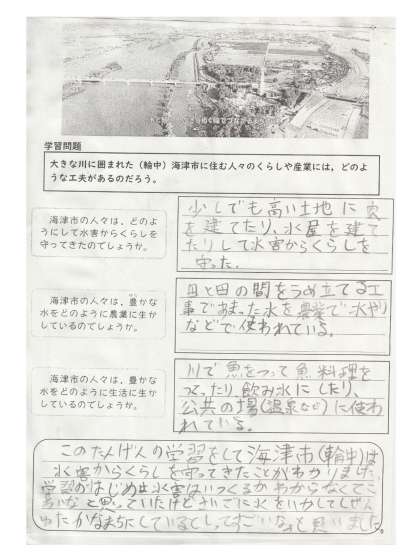 学習問題
大きな川に囲まれた（輪中）海津市に住む人々のくらしや産業には，どのよ
うな工夫があるのだろう。
海津市の人々は，どのよ
うにして水害からくらしを
守ってきたのでしょうか。
少しでも高い土地に家
を建てたり、水屋を建て
たりして水害からくらしを
守った。
海津市の人々は，豊かな
水をどのように農業に生か
しているのでしょうか。
田と田の間をうめ立てる工
事であまった水を農業で水やり
などで使われている。
海津市の人々は，豊かな
水をどのように生活に生か
しているのでしょうか。
川で魚をつって魚料理を
つくったり飲み水にしたり、
公共の場(温泉など)に使わ
れている。
このたんげんの学習をして海津市(輪中)は
水害からくらしを守ってきたことがわかりました
学習のはじめは水害はいつくるかわからなくてこ
わいなと思っていたけどさいごに水をいかしてしぜん
ゆたかなまちにしているとしってすごいなと思いました。